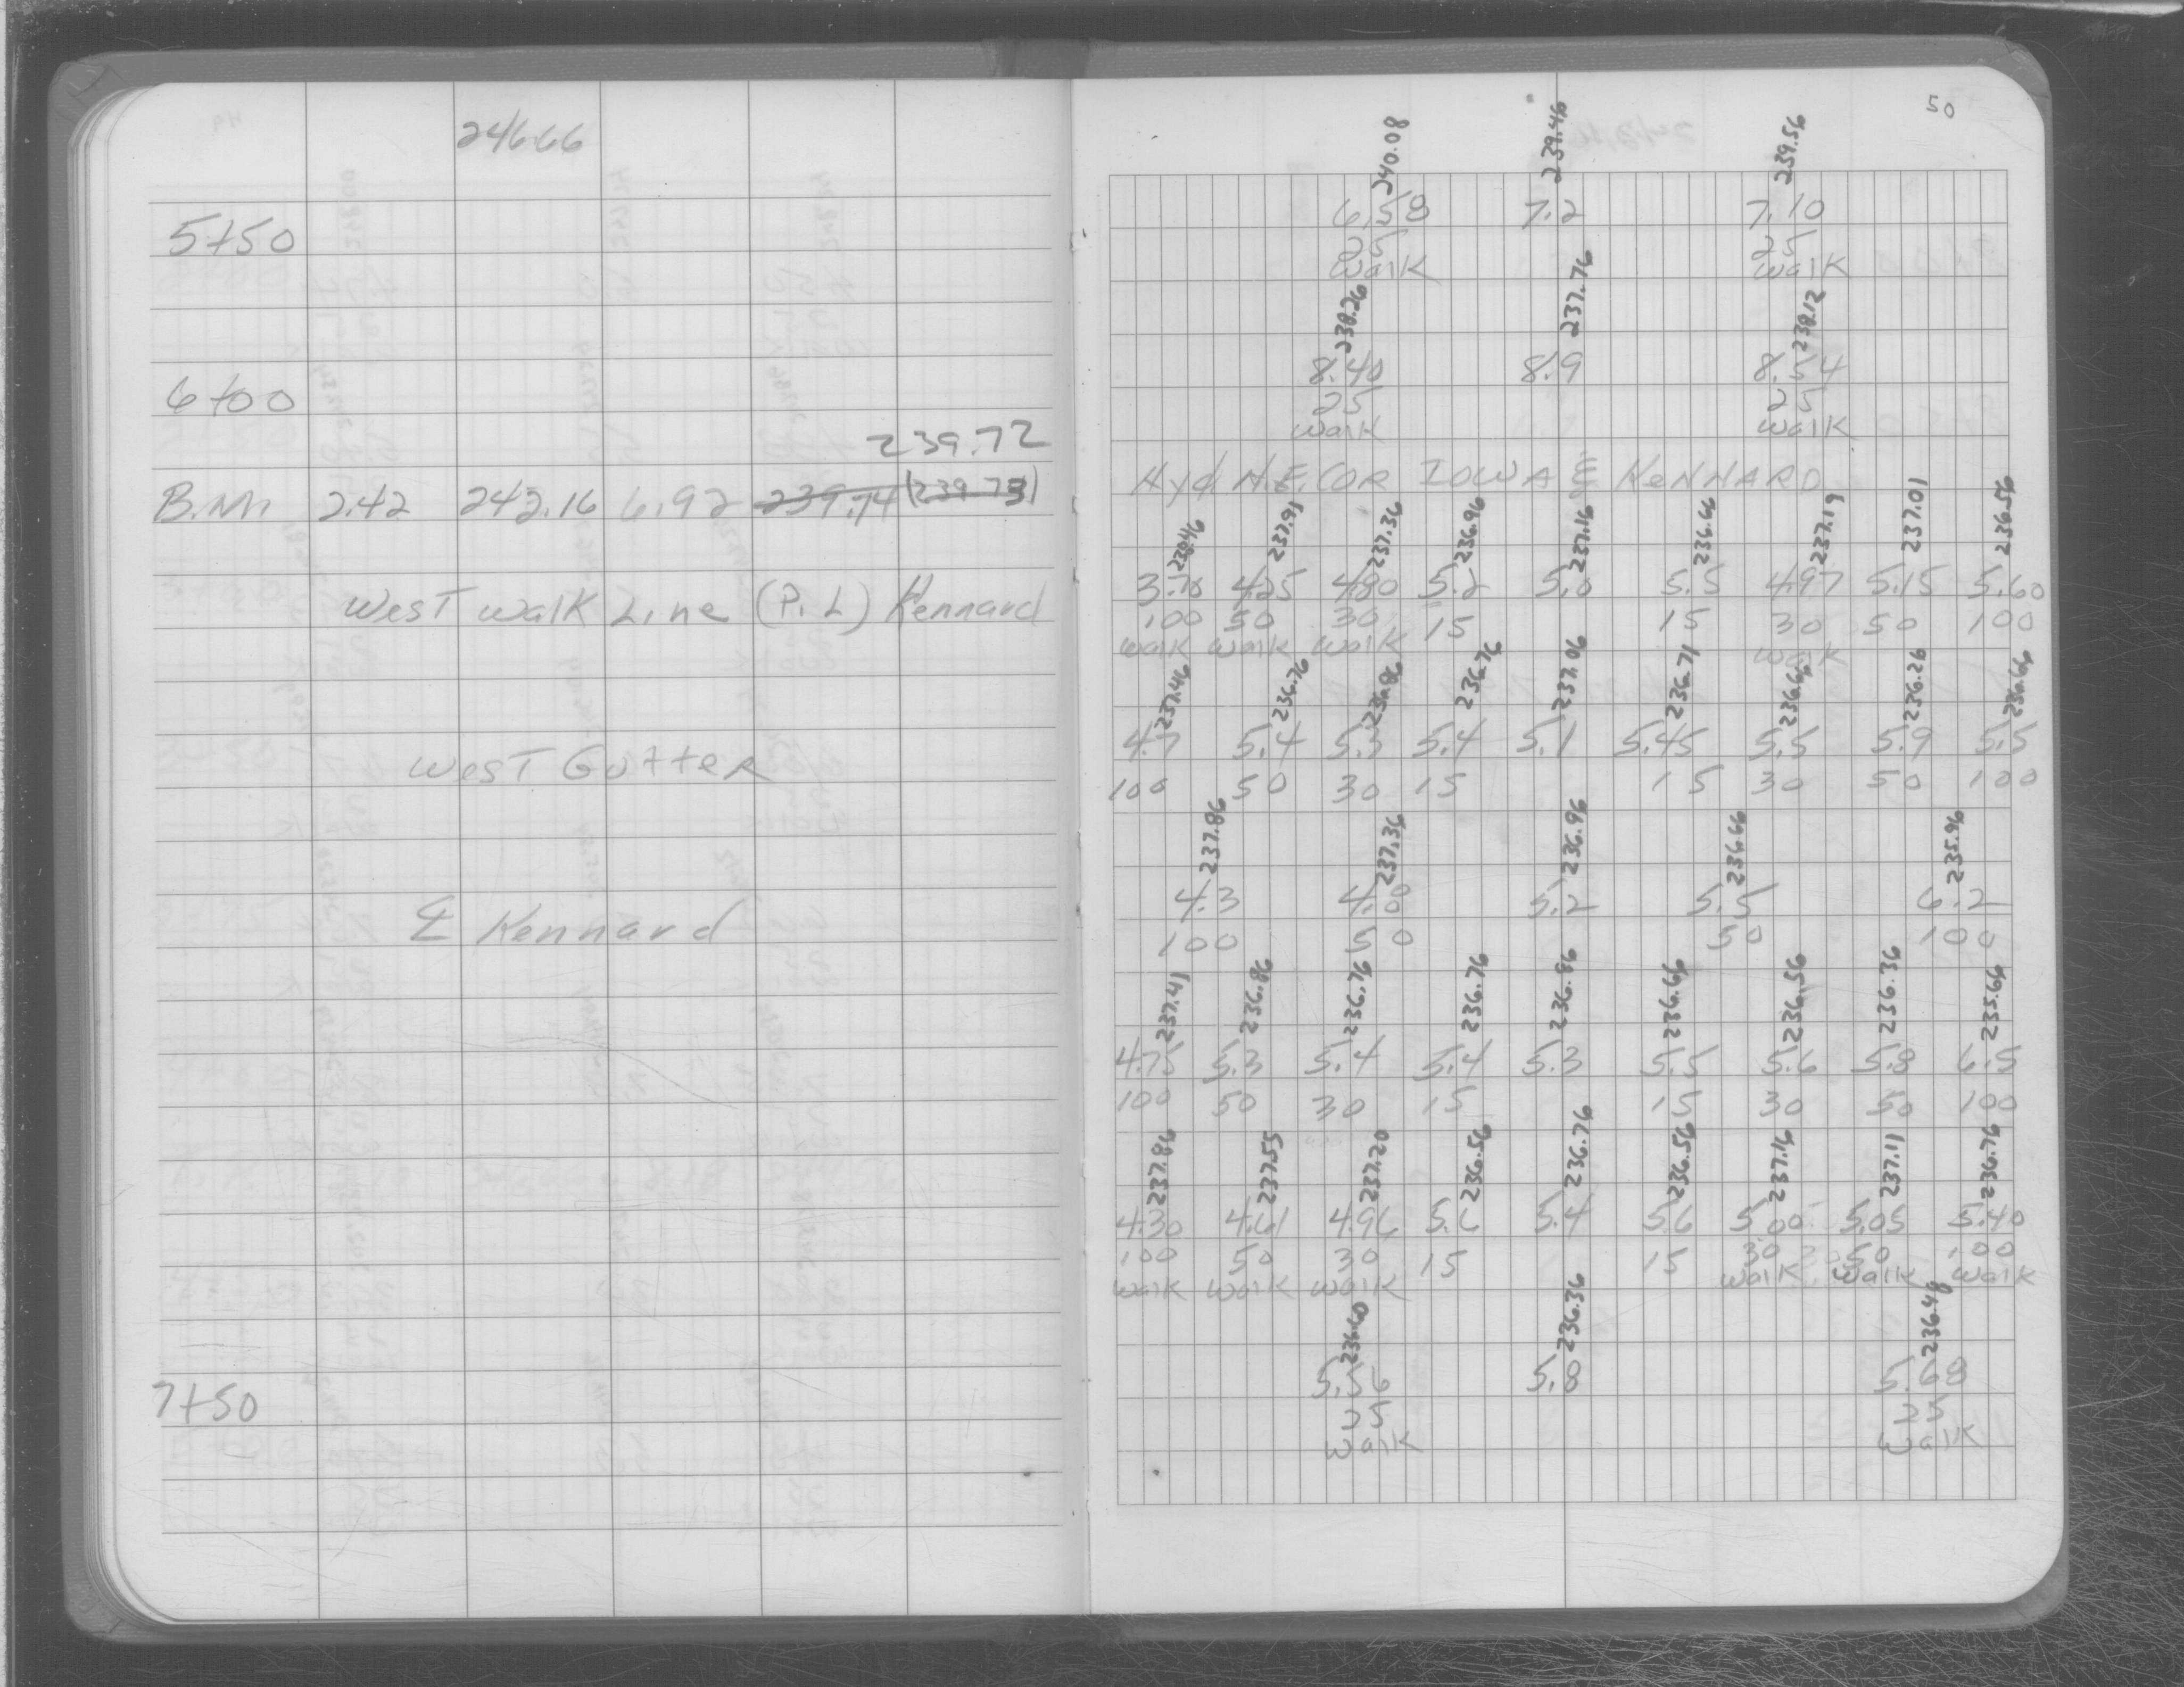 246.66
5+50
6+00
239.72
B.M. 2.42 242.16 6.92 239.74 (239.73)
West Walk Line (P.L) Kennard
West Gutter
℄ Kennard
7+50
50
240.08 239.46 239.56
6.58 7.2 7.10
25 25
walk walk
238.26 237.76 238.12
8.40 8.9 8.54
25 25
walk walk
Hyd N.E. COR IOWA & KENNARD
238.46 237.91 237.36 236.96 237.16 236.66 237.19 237.01 236.56
3.70 4.25 4.80 5.2 5.0 5.5 4.97 5.15 5.60
100 50 30 15 15 30 50 100
walk walk walk walk
237.46 236.76 236.86 236.76 237.06 236.71 236.66 236.26 236.66
4.7 5.4 5.3 5.4 5.1 5.45 5.5 5.9 5.5
100 50 30 15 15 30 50 100
237.86 237.36 236.96 236.66 235.96
4.3 4.80 5.2 5.5 6.2
100 50 50 100
237.41 236.86 236.76 236.76 236.86 236.66 236.56 236.36 235.66
4.75 5.3 5.4 5.4 5.3 5.5 5.6 5.8 6.5
100 50 30 15 15 30 50 100
237.86 237.55 237.20 236.56 236.76 236.56 237.16 237.11 236.76
4.30 4.61 4.96 5.6 5.4 5.6 5.00 5.05 5.40
100 50 30 15 15 30 50 100
walk walk walk walk walk walk
236.60 236.36 236.48
5.56 5.8 5.68
25 25
walk walk